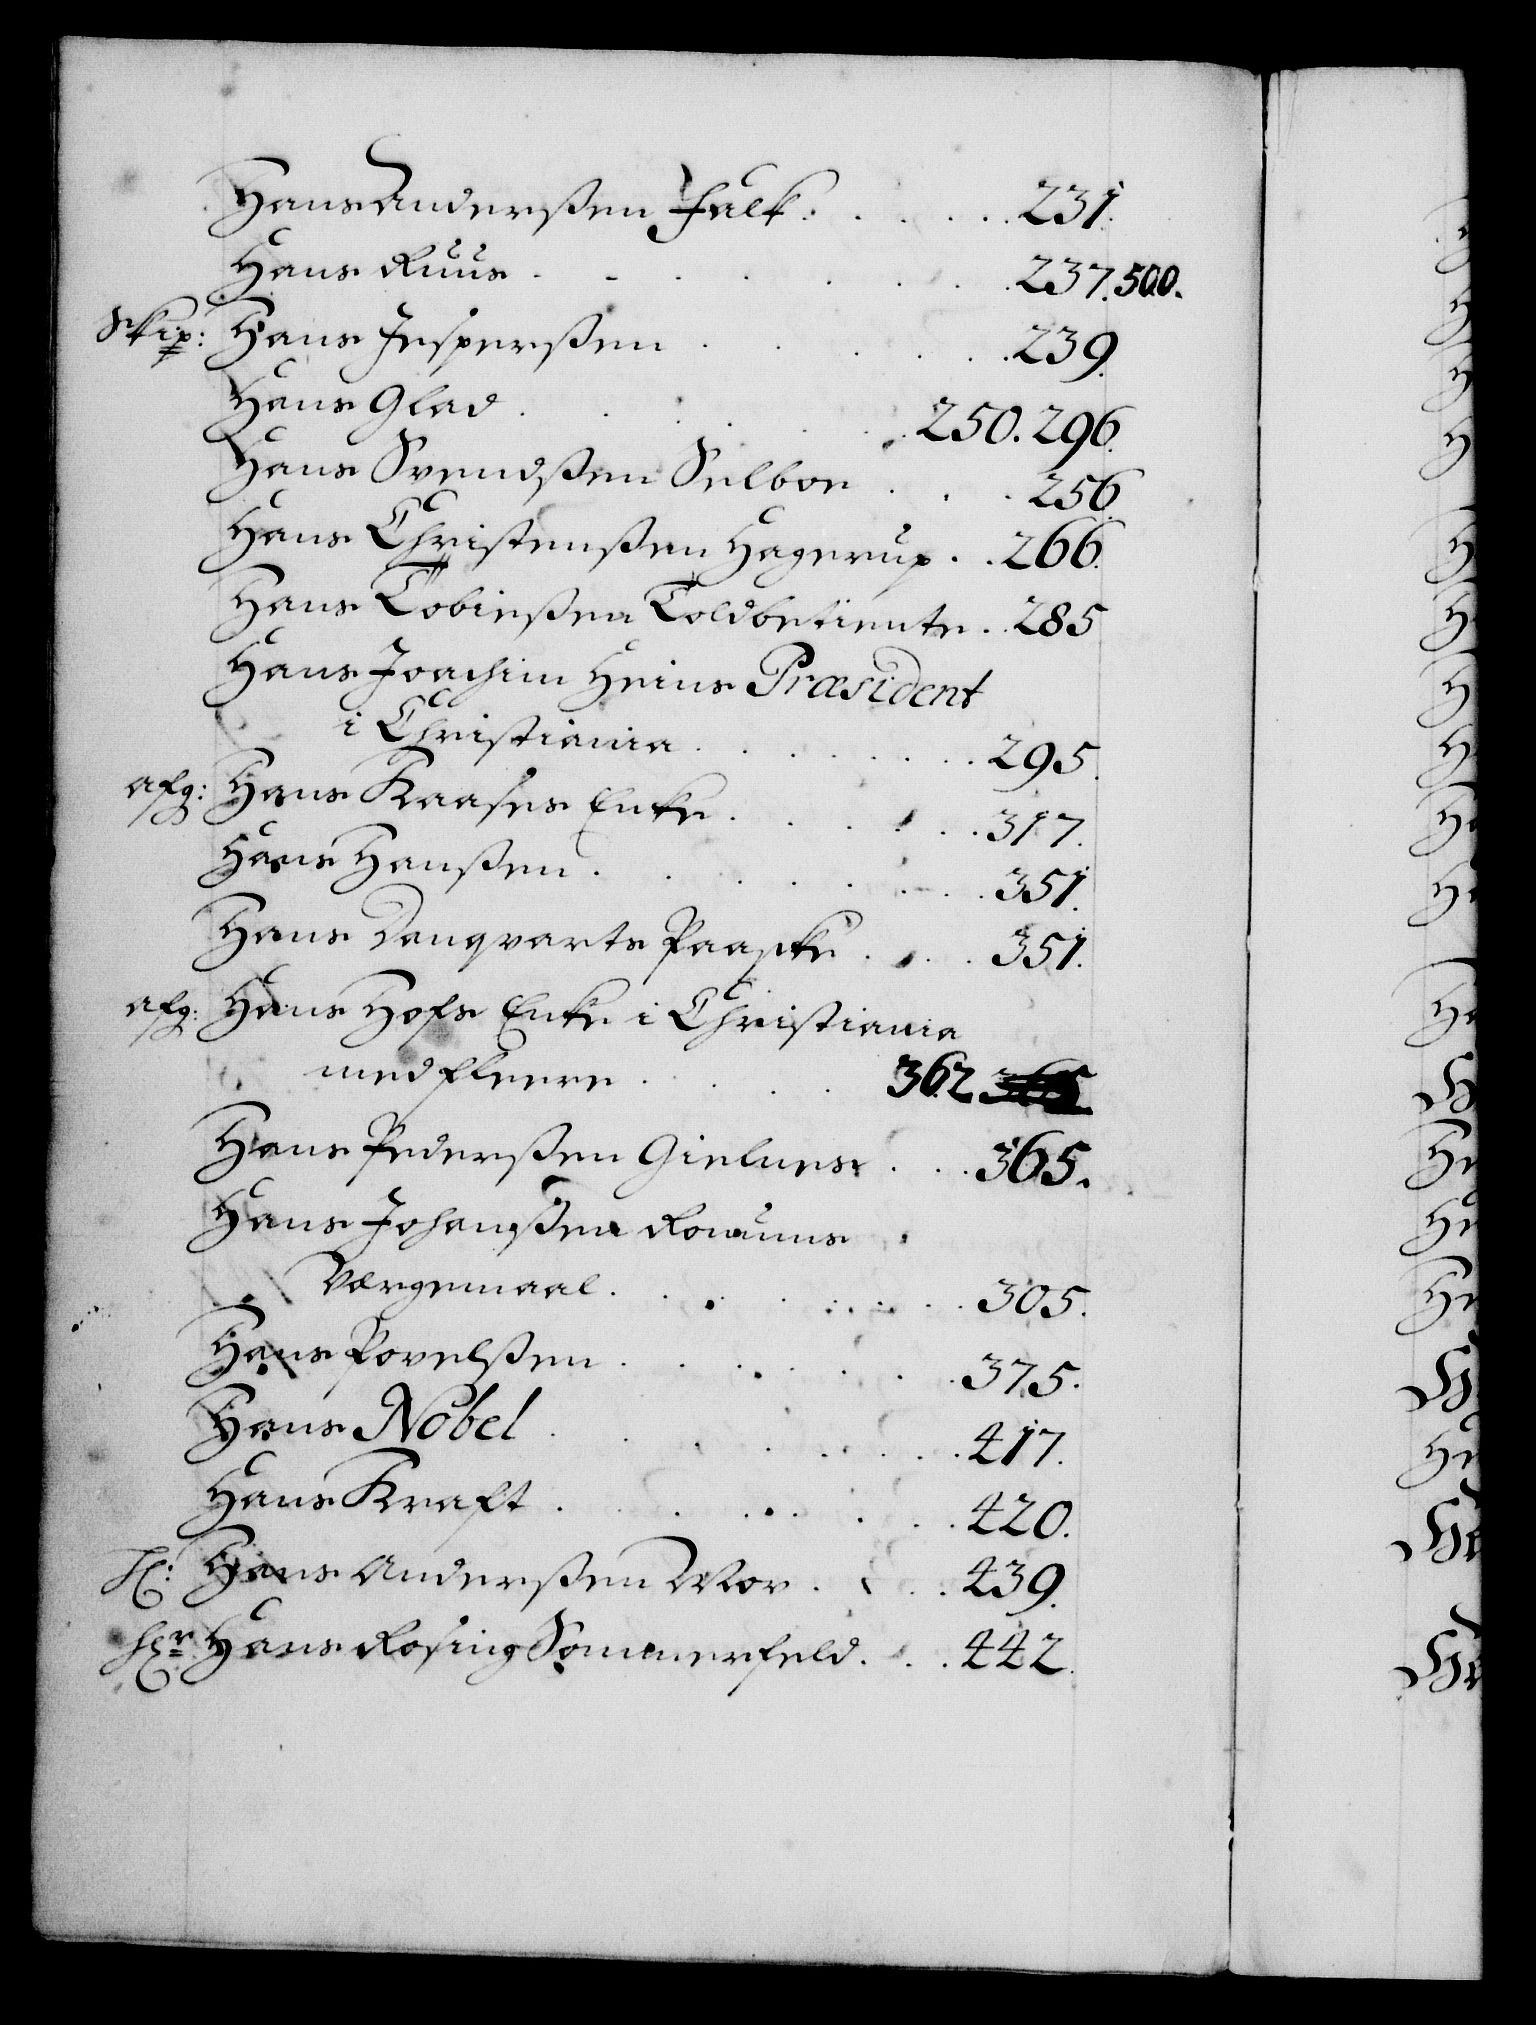 Hans Anderßen Falk . . . . . 231.
Hans Ruus . . . . . . . 237. 500.
Skip: Hans Jesperßen . . . . . . 239.
Hans Glad . . . . . . 250. 296.
Hans Svendßen Selboe . . . 256.
Hans Christenßen Hagerup . . 266.
Hans Tobießen Toldbetiente . 285
Hans Joachim Heins Præsident
i Christiania . . . . . . . 295.
afg: Hans Kaases Enke . . . . . . 317.
Hans Hanßen . . . . . . . 351.
Hans Danqvarts Paaske . . . . 351.
afg: Hans Hofs Enke i Christiania
med fleere . . . . 362
Hans Pederßen Gielnes . . . 365.
Hans Johanßen
Værgemaal . . . . . . . 305.
Hans Povelßen . . . . . . 375.
Hans Nobel . . . . . . . 417.
Hans Kraft . . . . . . . 420.
Hr: Hans Anderßen Mov . . . 439.
Hr Hans Rosing Sommerfeld . . . 442.